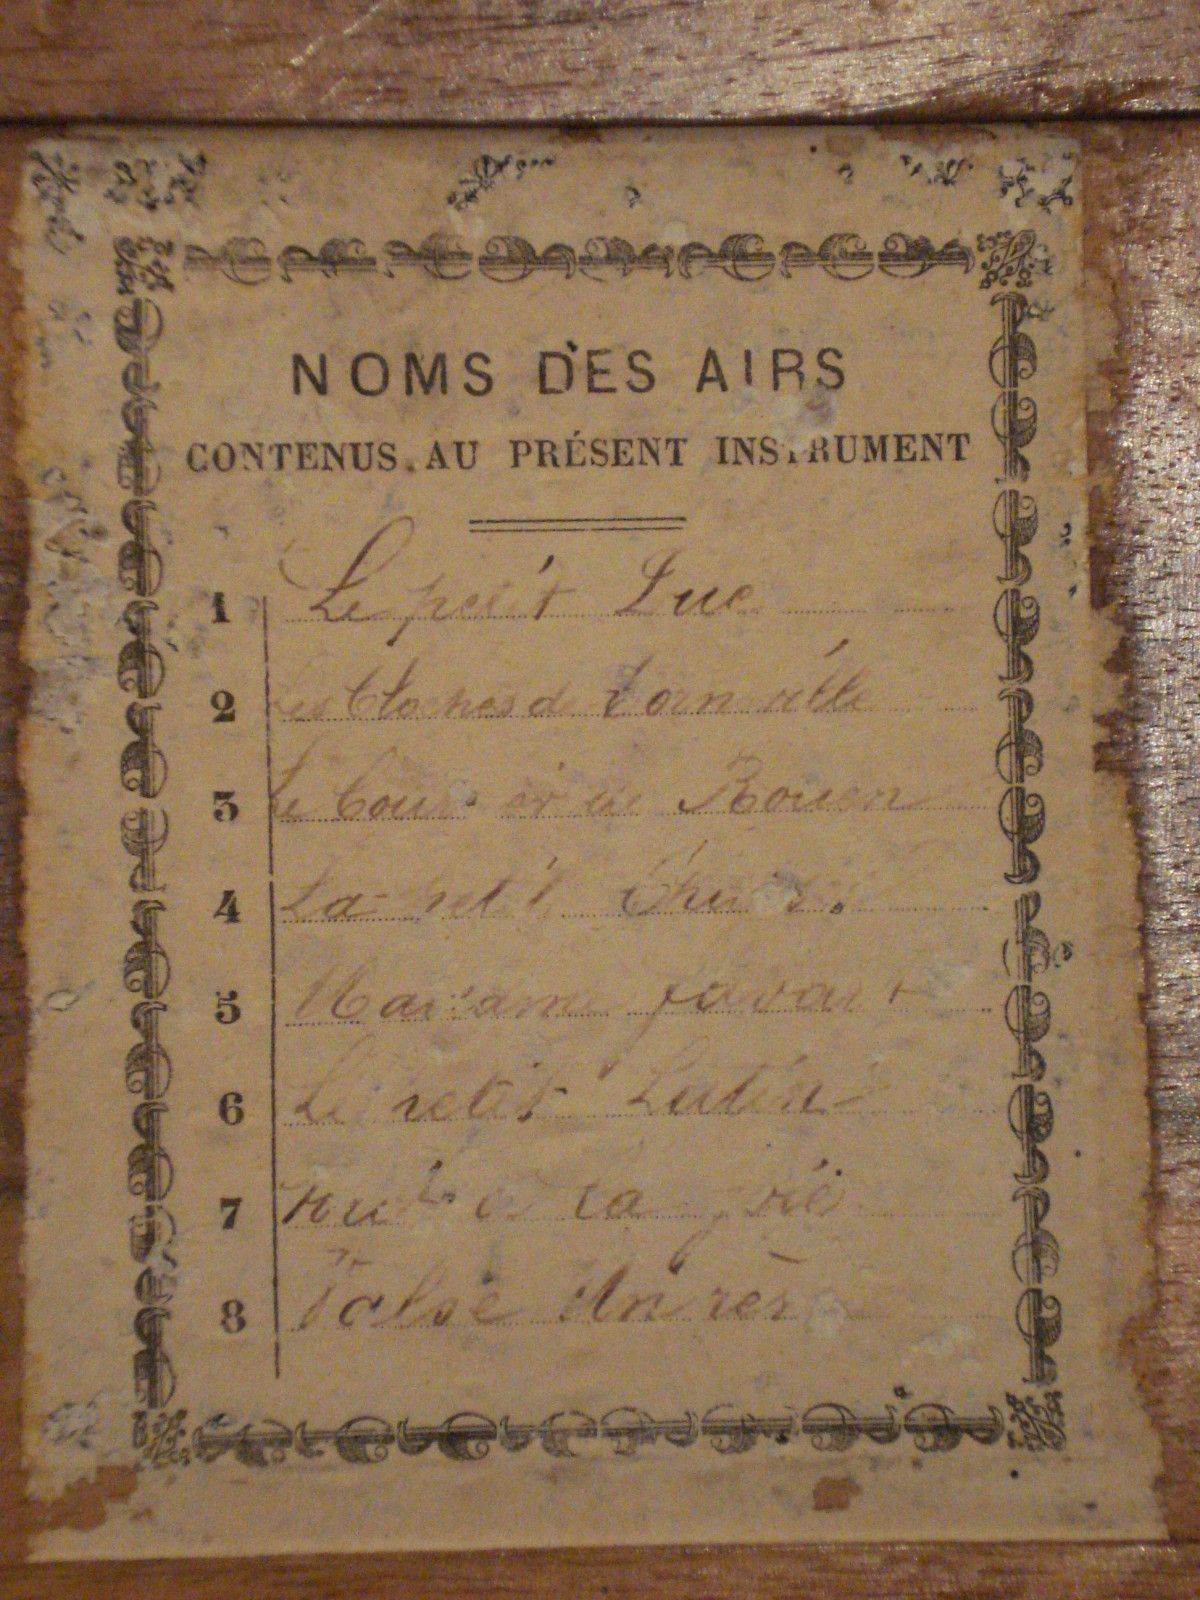 NOMS DES AIRS
CONTENUS AU PRÉSENT INSTRUMENT
1 Le petit Duc
2 Les Cloches de Cornville
3 Le Rouen
4 La
5 Madame favart
6 Le petit Lutin
7 la joie
8 Valse Un